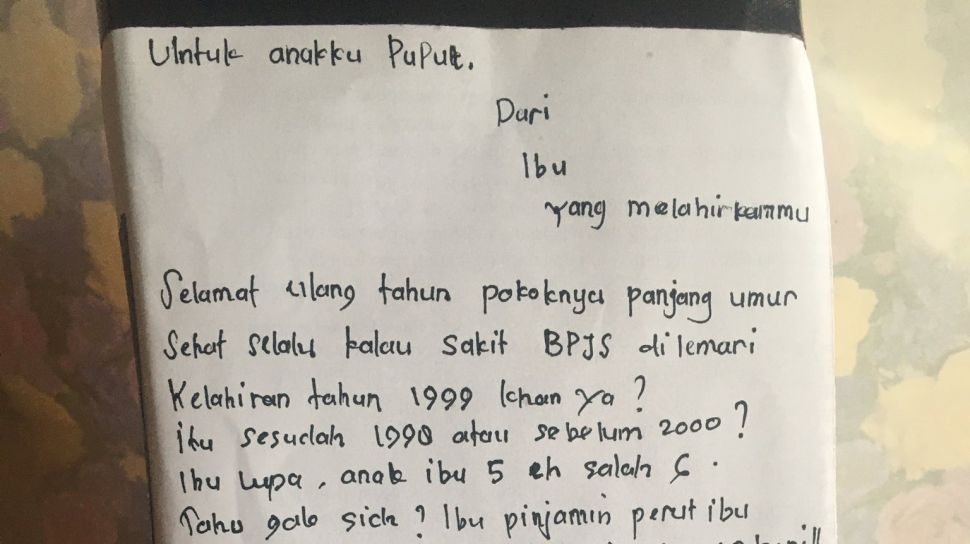 Untuk anakku Puput.
Dari
Ibu
yang melahirkanmu
Selamat ulang tahun pokoknya panjang umur
Sehat selalu kalau sakit BPJS di lemari
Kelahiran tahun 1999 khan ya ?
itu sesudah 1998 atau sebelum 2000 ?
Ibu lupa, anak ibu 5 eh salah 6.
Tahu gak sich ? Ibu pinjamin perut ibu